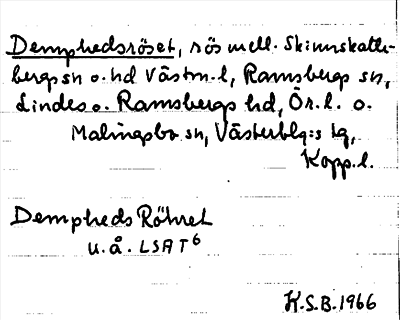 Demphedsröset, rös mell. Skinnskatte-
bergs sn o. hd Västm. l, Ramsbergs sn,
Lindes o. Ramsbergs hd, Ör. l. o.
Malingsbo sn, Västerblg:s tg,
Kopp. l.
Dempheds Röhret
u.å. LSA T6
K.S.B. 1966